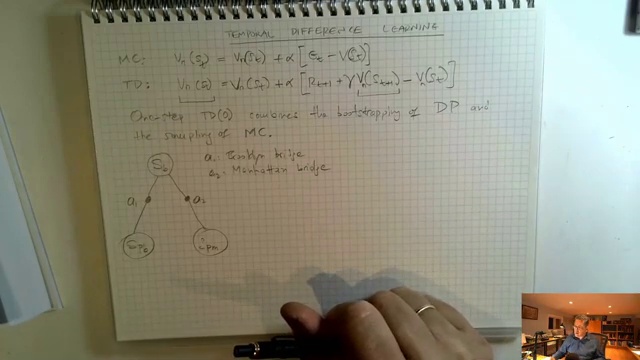 TEMPORAL DIFFERENCE LEARNING
MC: Vπ(St) = Vπ(St) + α [Gt − V(St)]
TD: Vπ(St) = Vπ(St) + α [Rt+1 + γ Vπ(St+1) − V(St)]
One-step TD(0) combines the bootstrapping of DP and
the sampling of MC.
a1: Brooklyn bridge
a2: Manhattan bridge
a1 a2